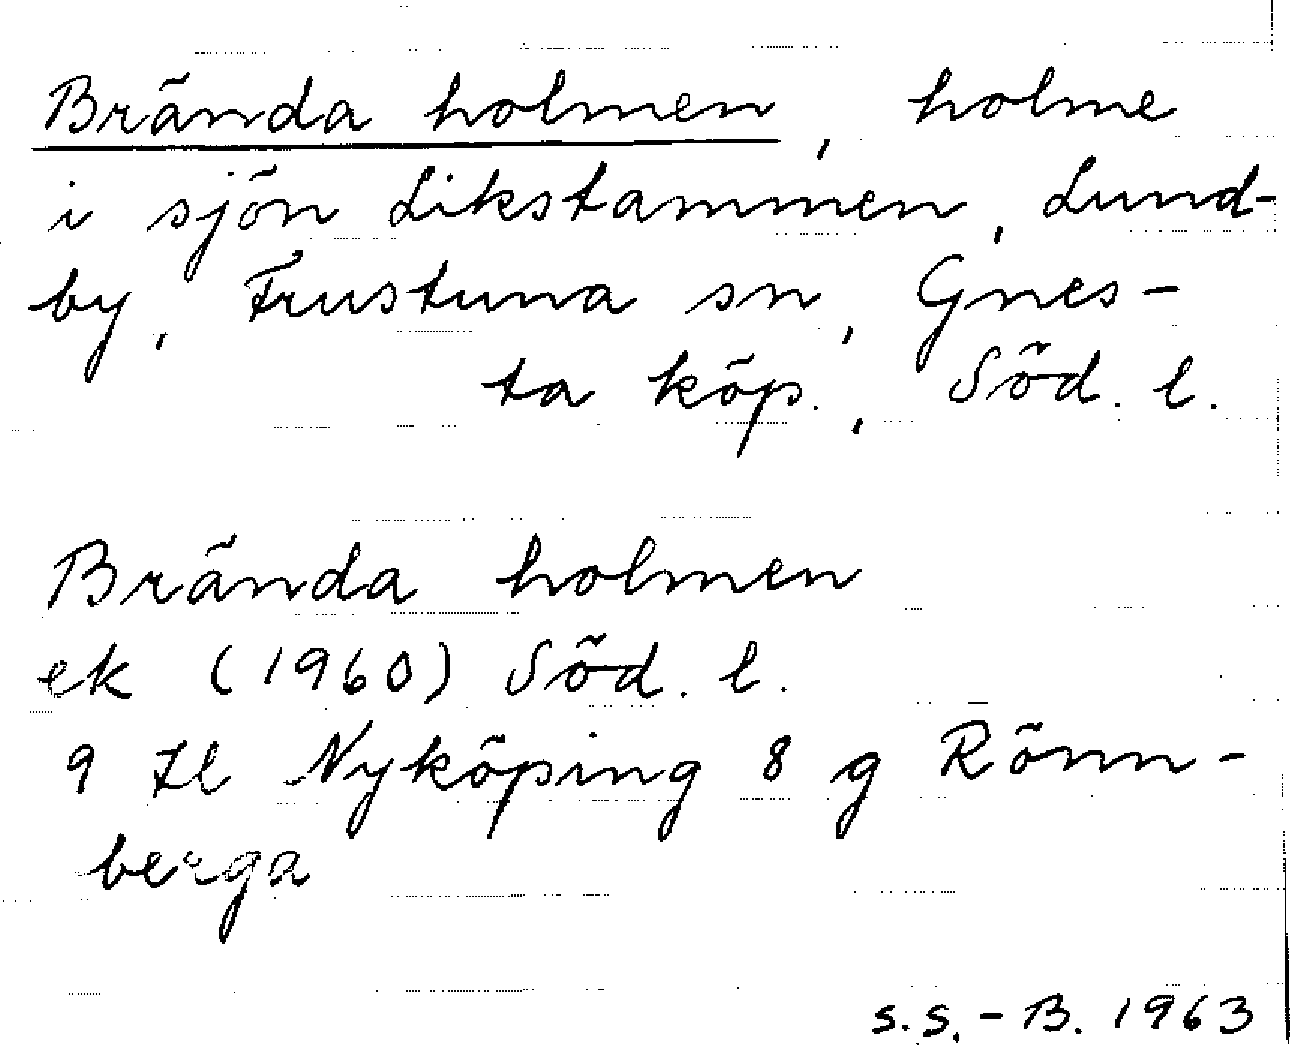 Brända holmen, holme
i sjön Likstammen, Lund-
by, Frustuna sn, Gnes-
ta köp., Söd. l.
Brända holmen
ek (1960) Söd. l.
9 H Nyköping 8 g Rönn-
berga
s.s.-B. 1963